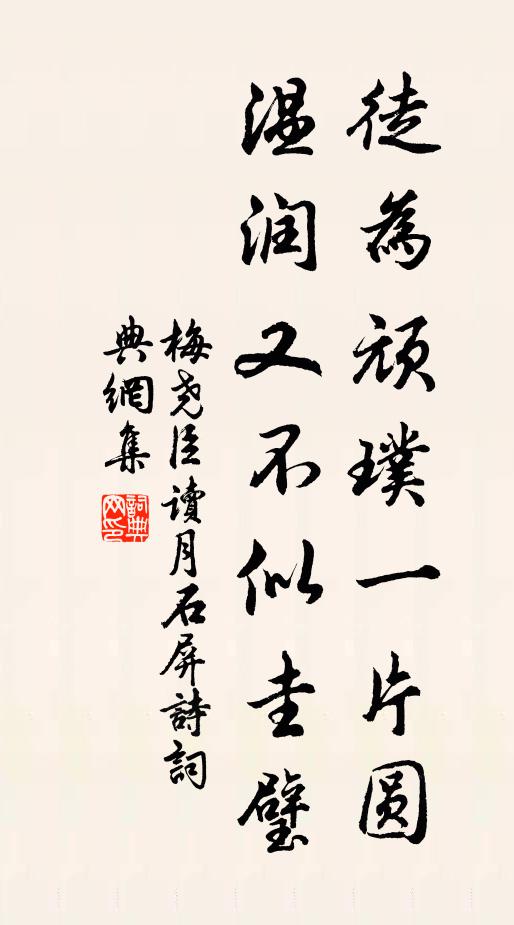 徒為頑璞一片圆
温润又不似圭璧
梅尧臣讀月石屏詩詞
典網集
詞典网印